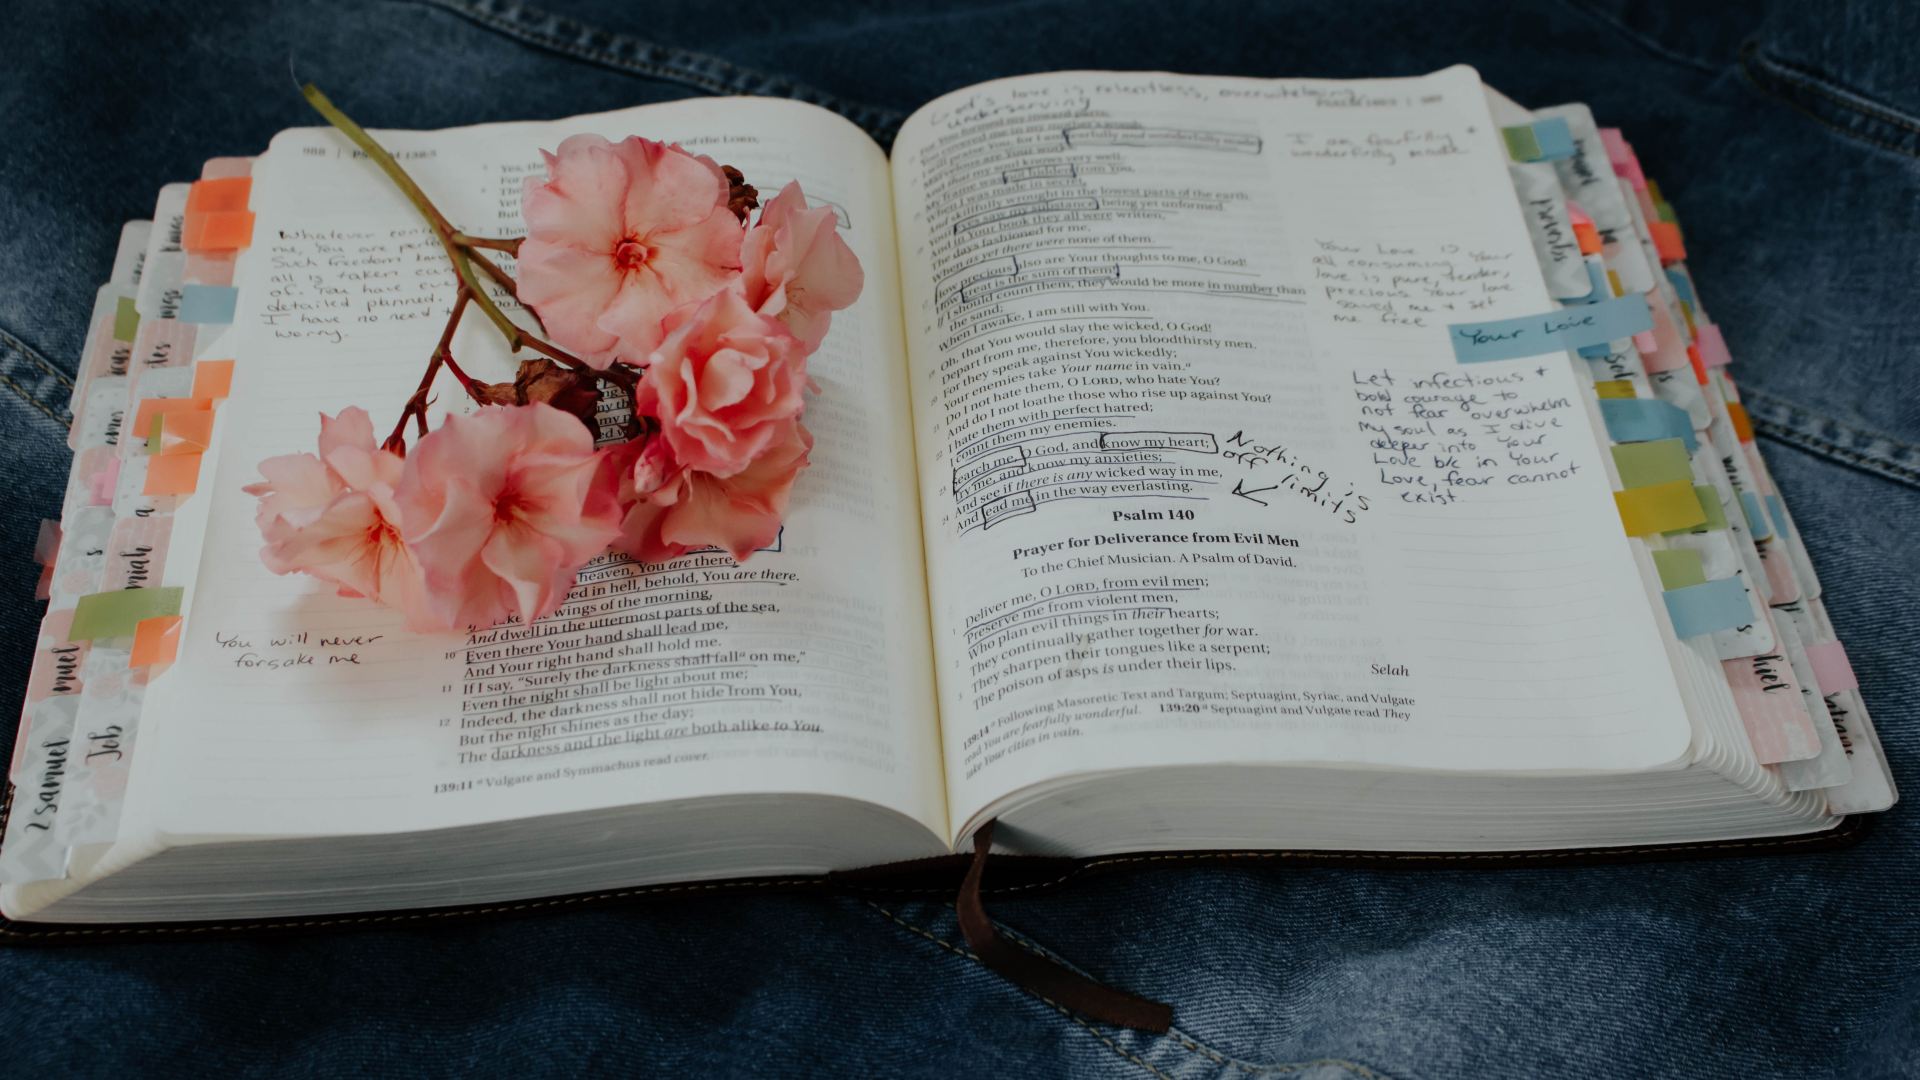 988 | Psalm 138:5
of the LORD,
Yes, the
For
Yet
But
Whatever
me, You are
Such freedom
all is taken care
of. You have
detailed planned.
I have no need
worry.
see fro
heaven, You are there;
bed in hell, behold, You are there.
wings of the morning,
And dwell in the uttermost parts of the sea,
10 Even there Your hand shall lead me,
And Your right hand shall hold me.
11 If I say, "Surely the darkness shall fallᵃ on me,"
Even the night shall be light about me;
12 Indeed, the darkness shall not hide from You,
But the night shines as the day;
The darkness and the light are both alike to You.
139:11 ᵃ Vulgate and Symmachus read cover.
You will never
forsake me
2 Samuel
Job
muel
miah
God's love is relentless, overwhelming
underserving
For You formed my inward parts;
You covered me in my mother's womb.
I will praise You, for I am fearfully and wonderfully made;
Marvelous are Your works,
And that my soul knows very well.
My frame was not hidden from You,
When I was made in secret,
And skillfully wrought in the lowest parts of the earth.
Your eyes saw my substance, being yet unformed.
And in Your book they all were written,
The days fashioned for me,
When as yet there were none of them.
How precious also are Your thoughts to me, O God!
How great is the sum of them!
If I should count them, they would be more in number than
the sand;
When I awake, I am still with You.
Oh, that You would slay the wicked, O God!
Depart from me, therefore, you bloodthirsty men.
For they speak against You wickedly;
Your enemies take Your name in vain.ᵃ
Do I not hate them, O LORD, who hate You?
And do I not loathe those who rise up against You?
I hate them with perfect hatred;
I count them my enemies.
Search me, O God, and know my heart;
Try me, and know my anxieties;
And see if there is any wicked way in me,
And lead me in the way everlasting.
Psalm 140
Prayer for Deliverance from Evil Men
To the Chief Musician. A Psalm of David.
Deliver me, O LORD, from evil men;
Preserve me from violent men,
Who plan evil things in their hearts;
They continually gather together for war.
They sharpen their tongues like a serpent;
The poison of asps is under their lips. Selah
139:14 ᵃ Following Masoretic Text and Targum; Septuagint, Syriac, and Vulgate
read You are fearfully wonderful. 139:20 ᵃ Septuagint and Vulgate read They
take Your cities in vain.
I am fearfully +
wonderfully made
Your Love is
all consuming. Your
love is pure, tender,
precious. Your love
saved me + set
me free
Your Love
Let infectious +
bold courage to
not fear overwhelm
my soul as I dive
deeper into Your
Love b/c in Your
Love, fear cannot
exist.
Nothing is
off limits
Proverbs